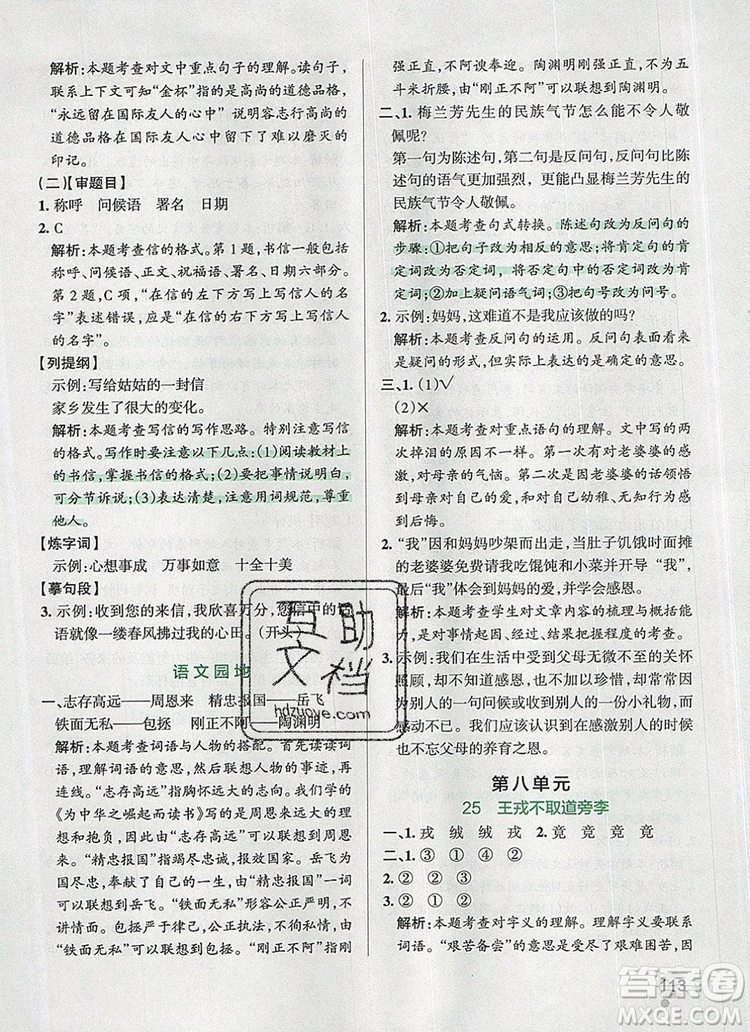 解析:本题考查对文中重点句子的理解。读句子,
联系上下文可知“金杯”指的是高尚的道德品格,
“永远留在国际友人的心中”说明容志行高尚的
道德品格在国际友人心中留下了难以磨灭的
印记。
(二)【审题目】
1. 称呼 问候语 署名 日期
2. C
解析:本题考查信的格式。第1题,书信一般包括
称呼、问候语、正文、祝福语、署名、日期六部分。
第2题,C项,“在信的左下方写上写信人的名
字”表述错误,应是“在信的右下方写上写信人
的名字”。
【列提纲】
示例:写给姑姑的一封信
家乡发生了很大的变化。
解析:本题考查写信的写作思路。特别注意写信的
格式。写作时要注意以下几点:(1)阅读教材上
的书信,掌握书信的格式;(2)要把事情说明白,
可分节诉说;(3)表达清楚,注意用词规范,尊重
他人。
【炼字词】
示例:心想事成 万事如意 十全十美
【摹句段】
3. 示例:收到您的来信,我欣喜万分,您信中的话
语就像一缕春风拂过我的心田。(开头)
语文园地
一、志存高远——周恩来 精忠报国——岳飞
铁面无私——包拯 刚正不阿——陶渊明
解析:本题考查词语与人物的搭配。首先读读词
语,理解词语的意思,然后联想人物,再进行连
线。“志存高远”指胸怀伟大的志向。学习了
《为中华之崛起而读书》写的是周恩来的理想
和抱负,由“志存高远”这个词可以联想到周恩
来。“精忠报国”指竭尽忠诚,报效国家。岳飞
为国尽忠,甚至献出了自己的生命,由“精忠报国”一词
可以联想到岳飞。“铁面无私”形容不怕权势,
不讲情面。包拯公正廉洁,公正执法,不徇私情,由
“铁面无私”可以联想到包拯。“刚正不阿”指刚
强正直,不阿谀奉迎。陶渊明刚强正直,不为五
斗米折腰,由“刚正不阿”可以联想到陶渊明。
二、1. 梅兰芳先生的民族气节怎么能不令人敬
佩呢?
第一句为陈述句,第二句是反问句,反问句比陈
述句的语气更加强烈,更能凸显梅兰芳先生的
民族气节令人敬佩。
解析:本题考查句式转换。陈述句改为反问句的
步骤:①把句子改为相反的意思;将肯定句的肯
定词改为否定词,将否定句中的否定词改为肯
定词;②加上疑问语气词;③句号改为问号。
2. 示例:妈妈,这难道不是我应该做的吗?
解析:本题考查反问句的运用。反问句表面看来
是疑问的形式,但实际上表达的是确定的意思。
三、1. (1)√
(2)×
解析:本题考查对重点语句的理解。文中写的两
次掉泪是不同的原因。第一次是对老婆婆的感
激,对母亲的气恼。第二次是因老婆婆的话领悟
到母亲对自己的爱,而对母亲感激,对自己的行为
感到后悔。
2. “我”因和妈妈吵架而出走,当肚子饥饿时面摊
的老婆婆免费给我吃馄饨和小菜并开导“我”,
使“我”懂得妈妈的爱,并学会感恩。
解析:本题考查学生对文章内容的梳理与概括能
力,是综合能力的考查。
3. 示例:我们在生活中受到父母无微不至的关爱,
却觉得理所当然,不知感恩。但是我们常常因为
别人的一句问候或者别人给的一个小礼物,而
感动不已。我们应该认识到在感激别人的同时
也不忘父母的养育之恩。
第八单元
25 王戎不取道旁李
一、1. 戎 绒 绒 戎 2. 竟 竞 竟 竞
二、1. ③ ① ④ ②
2. ② ②
3. ② ① ②
解析:本题考查对字义的理解。理解字义要联系
词语。“艰苦备尝”的意思是受尽了艰难困苦,因
互助文档
hdzuoye.com
113
答案圈
MXQE.COM